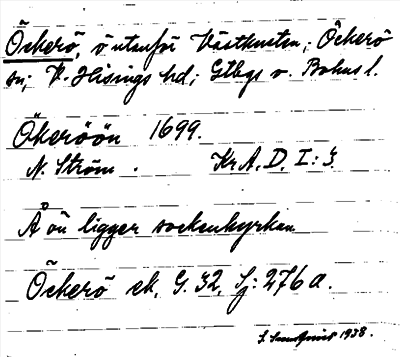 Öckerö, ö utanför Västkusten; Öckerö
sn; V. Hisings hd; Gtbgs o. Bohus l.
Ökeröön 1699.
N. Ström. Kr.A. D. I: 3.
Å ön ligger sockenkyrkan
Öckerö ek. G. 32, Sj: 276 a.
1938.